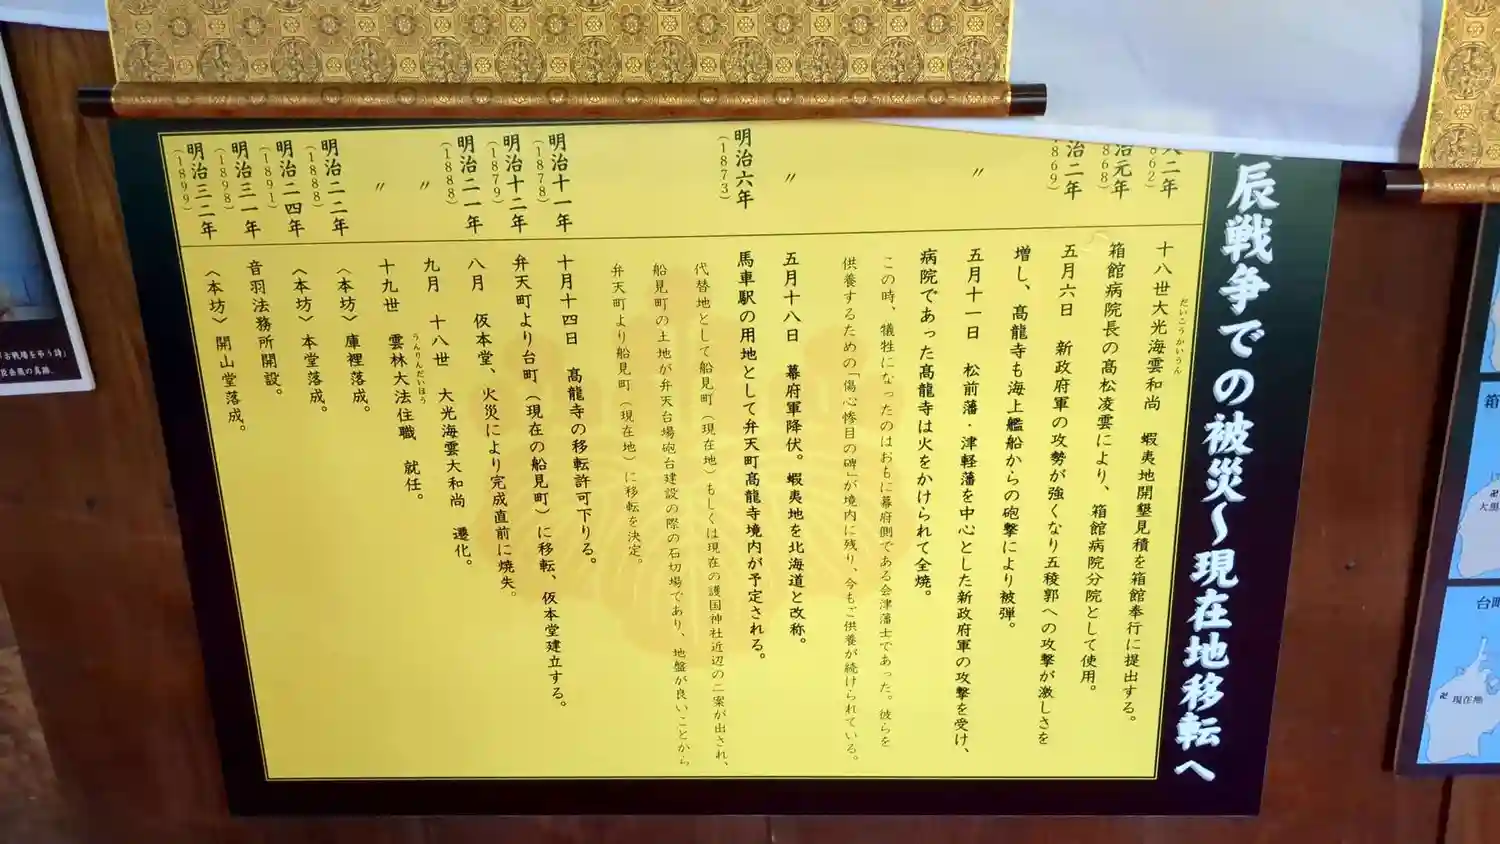 辰戦争での被災〜現在地移転へ
久二年
862)
十八世大光海雲和尚 蝦夷地開墾見積を箱館奉行に提出する。
だいこうかいうん
治元年
868)
箱館病院長の高松凌雲により、箱館病院分院として使用。
治二年
1869)
五月六日 新政府軍の攻勢が強くなり五稜郭への攻撃が激しさを
増し、高龍寺も海上艦船からの砲撃により被弾。
〃
五月十一日 松前藩・津軽藩を中心とした新政府軍の攻撃を受け、
病院であった高龍寺は火をかけられて全焼。
この時、犠牲になったのはおもに幕府側である会津藩士であった。彼らを
供養するための「傷心惨目の碑」が境内に残り、今もご供養が続けられている。
〃
五月十八日 幕府軍降伏。蝦夷地を北海道と改称。
明治六年
(1873)
馬車駅の用地として弁天町高龍寺境内が予定される。
代替地として船見町(現在地)もしくは現在の護国神社近辺の二案が出され、
船見町の土地が弁天台場砲台建設の際の石切場であり、地盤が良いことから
弁天町より船見町(現在地)に移転を決定。
明治十一年
(1878)
十月十四日 高龍寺の移転許可下りる。
明治十二年
(1879)
弁天町より台町(現在の船見町)に移転、仮本堂建立する。
明治二一年
(1888)
八月 仮本堂、火災により完成直前に焼失。
〃
九月 十八世 大光海雲大和尚 遷化。
〃
十九世 雲林大法住職 就任。
うんりんだいほう
明治二二年
(1888)
〈本坊〉庫裡落成。
明治二四年
(1891)
〈本坊〉本堂落成。
明治三一年
(1898)
音羽法務所開設。
明治三二年
(1899)
〈本坊〉開山堂落成。
箱
大黒
台町
卍 現在地